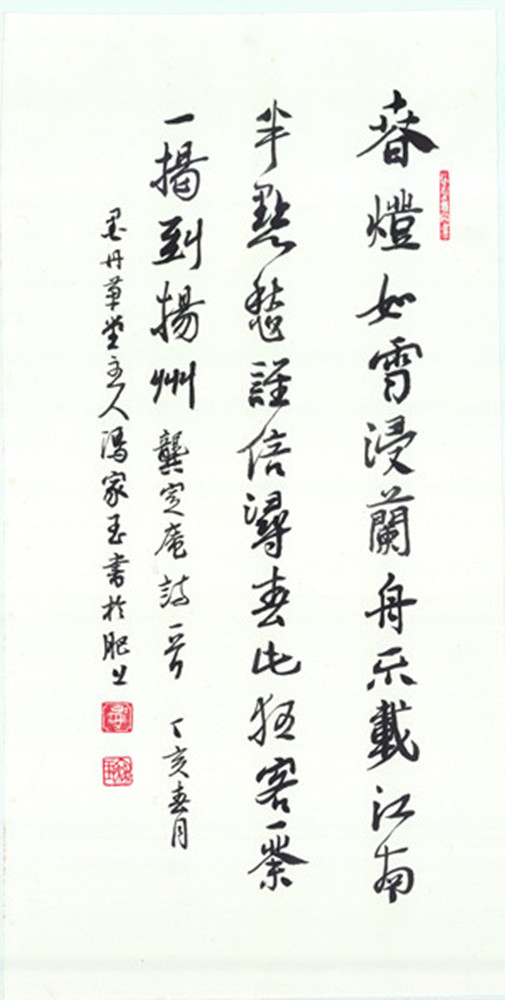 春燈如雪浸蘭舟不載江南
半點愁誰信潯春此狂客一茶
一揭到揚州 龔定庵詩一首 丁亥春月
墨丹草堂主人馮家玉書於肥上